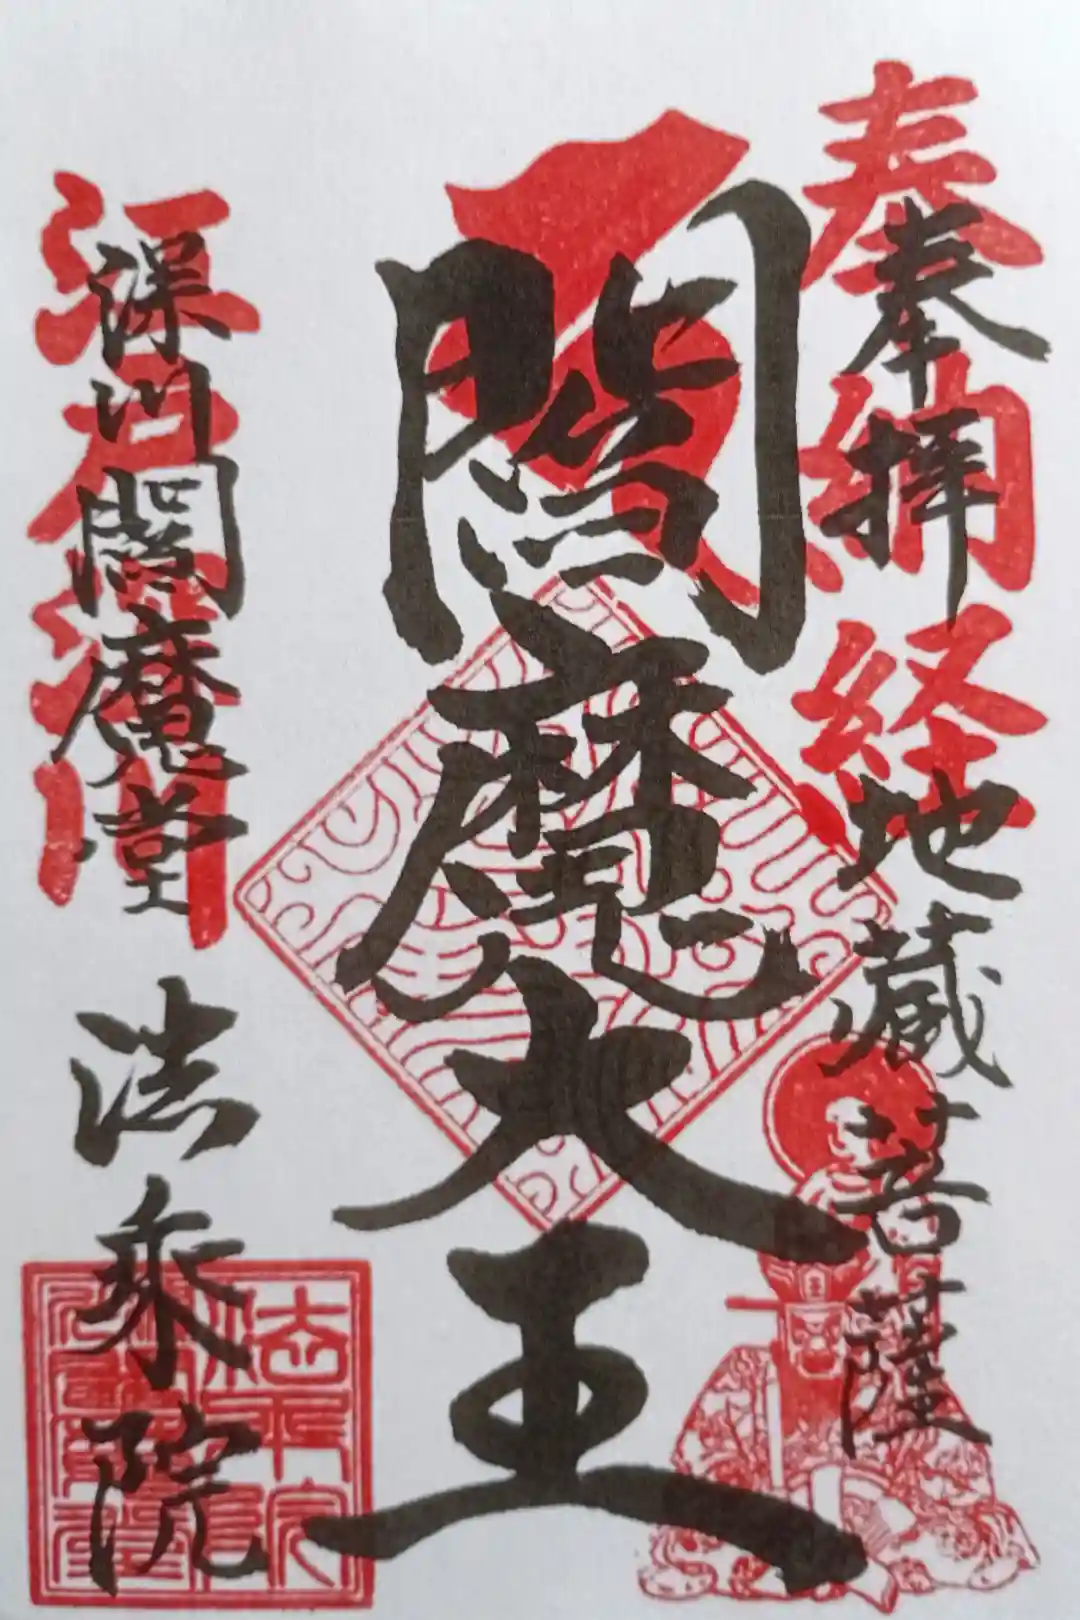 奉納経
奉拝 地蔵菩薩
閻魔大王
江戸深川
深川閻魔堂 法乗院